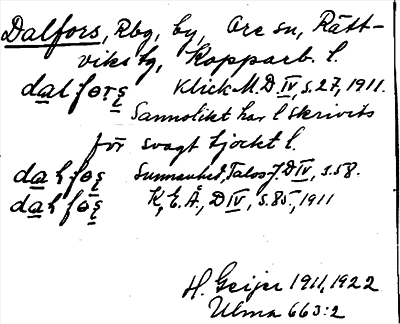 Dalfors, Rbg, by, Ore sn, Rätt-
viks tg, Kopparb. l.
dalfo̤rs̤ Klick M. D IV, s. 27, 1911.
Sannolikt har l skrivits
för svagt tjockt l.
daɫfo̤s̤ D IV, s. 58.
daɫfo̤s̤ K. E. Å., D IV, s. 85, 1911
H. Geijer 1911, 1922
Ulma 663:2